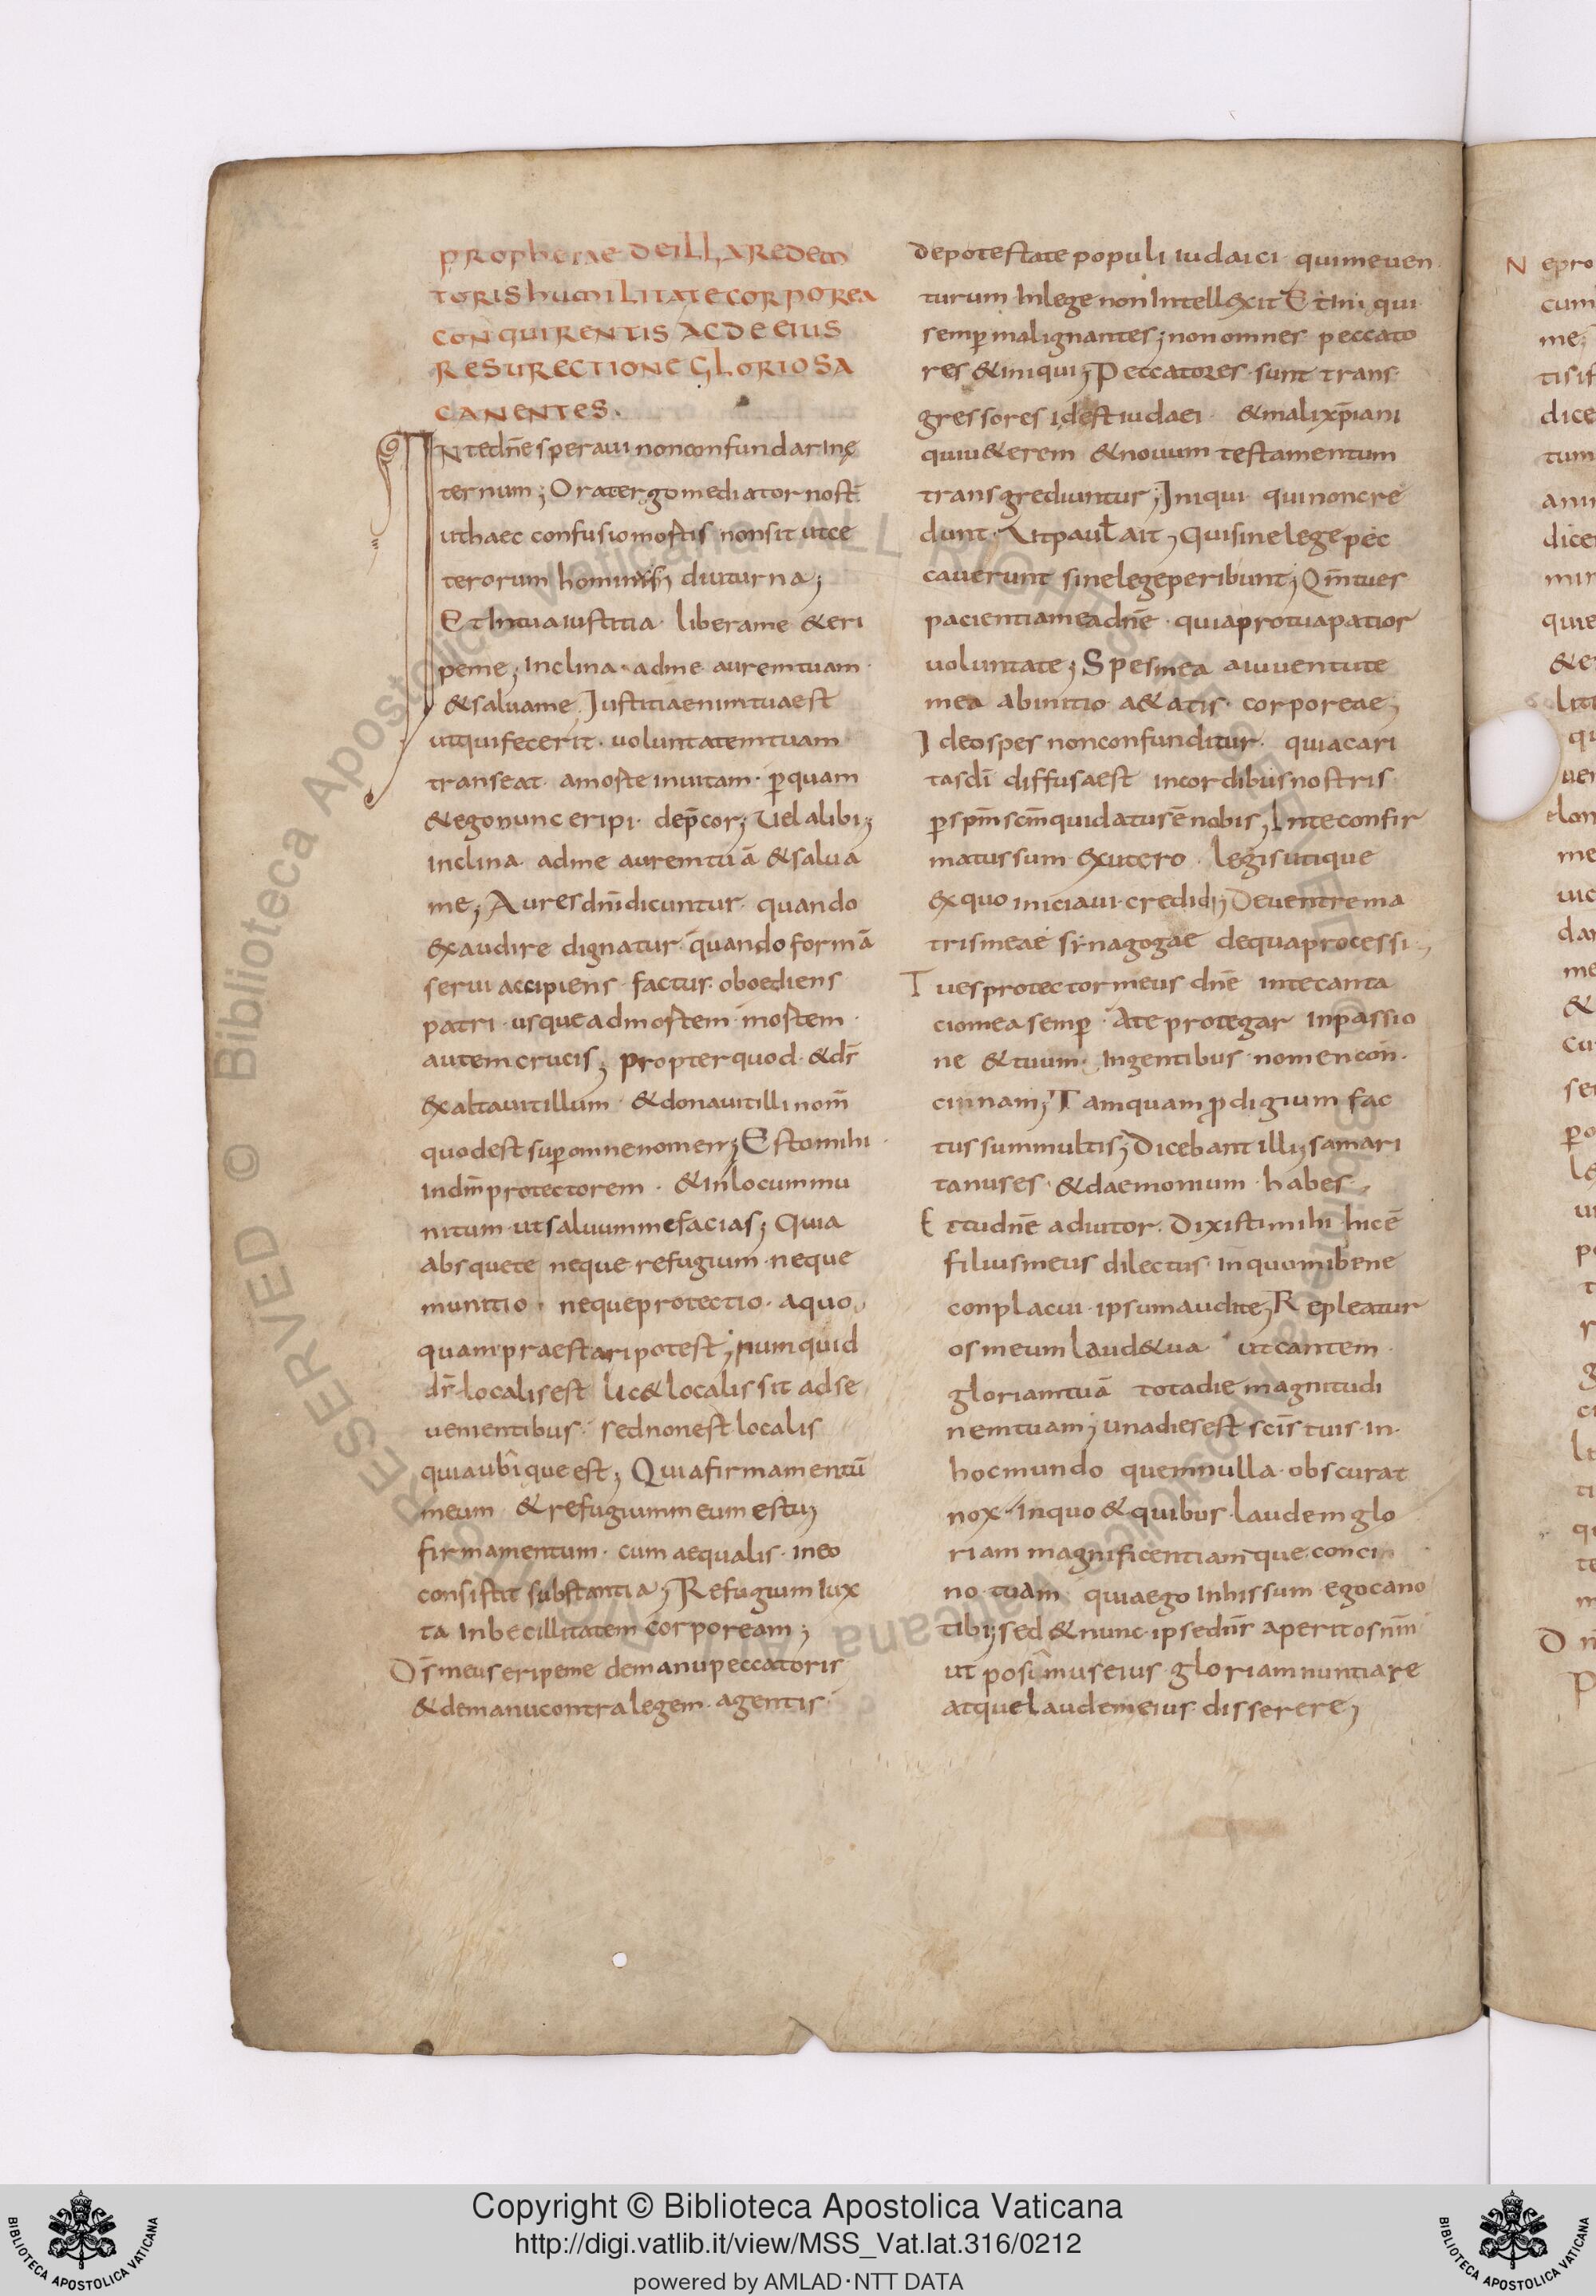 prophetae de illa redem
toris humilitate corporea
conquirentis ac de eius
resurectione gloriosa
canentes.
IN te dn̄e speraui non confundar in ę
ternum; Orat ergo mediator nost
ut haec confusio mortis non sit ut ce
terorum hominibus diuturna;
Et in tua iustitia· libera me & eri
pe me; Inclina· ad me aurem tuam·
& salua me Iustitia enim tua est
ut qui fecerit· uoluntatem tuam
transeat· a morte in uitam· p̄ quam
& ego nunc eripi· dep̄cor; Vel alibi;
inclina· ad me aurem tuā & salua
me; Aures dn̄i dicuntur· quando
exaudire dignatur· quando formā
serui accipiens· factus· oboediens
patri· usque ad mortem· mortem·
autem crucis; propter quod· & dr̄
exaltauit illum· & donauit illi nom̄
quod est sup̄ omne nomen; Esto mihi·
in dm̄ protectorem· & in locum mu
nitum· ut saluum me facias; Quia
absque te neque refugium· neque
munitio· neque protectio· a quo
quam praestari potest; numquid
dr̄ localis est lic& localis sit ad se
uenientibus· sed non est localis
quia ubique est; Quia firmamentū
meum & refugium meum es tu;
firmamentum· cum aequalis· in eo
consistit substantia; Refugium iux
ta inbecillitatem corpoream;
Ds̄ meus eripe me de manu peccatoris
& de manu contra legem· agentis·
de potestate populi iudaici· qui me uen
turum· In lege non intellexit Et Iniqui
semp̄ malignantes; non omnes peccato
res & iniqui; Peccatores· sunt trans
gressores id est iudaei· & mali xp̄iani
qui u&erem & nouum testamentum
transgrediuntur; Iniqui· qui non cre
dunt· Vt paul̄ ait; Qui sine lege pec
cauerunt sine lege peribunt; Qm̄ tu es
pacientia mea dn̄e· quia pro tua patior
uoluntate; Spes mea a iuuentute
mea ab initio a&atis· corporeae;
Ideo spes non confunditur· quia cari
tas dī diffusa est in cordibus nostris
p̄ spm̄ scm̄ qui datus ē nobis; In te confir
matus sum ex utero· legis utique
ex quo iniciaui· credidi; De uentre ma
tris meae synagogae de qua processi·
Tu es protector meus dn̄e in te canta
cio mea semp̄· A te protegar in passio
ne & tuum· In gentibus· nomen con·
cinnam; Tamquam p̄digium fac
tus sum multis; Dicebant illi; samari
tanus es· & daemonium· habes·
Et tu dn̄e adiutor. Dixisti mihi· hic ē
filius meus dilectus· in quo mi bene
conplacui· ipsum audite; Repleatur
os meum laud& ua ut cantem·
gloriam tuā tota die magnitudi
nem tuam; una dies est scīs tuis· in·
hoc mundo quem nulla· obscurat
nox· In quo & quibus· laudem glo
riam magnificentiamque conci
no· tuam quia ego in his sum· ego cano
tibi; sed & nunc· ipse dn̄r aperit os nm̄
ut possimus eius· gloriam nuntiare
atque laudem eius· disserere;
Copyright © Biblioteca Apostolica Vaticana
http://digi.vatlib.it/view/MSS_Vat.lat.316/0212
powered by AMLAD·NTT DATA